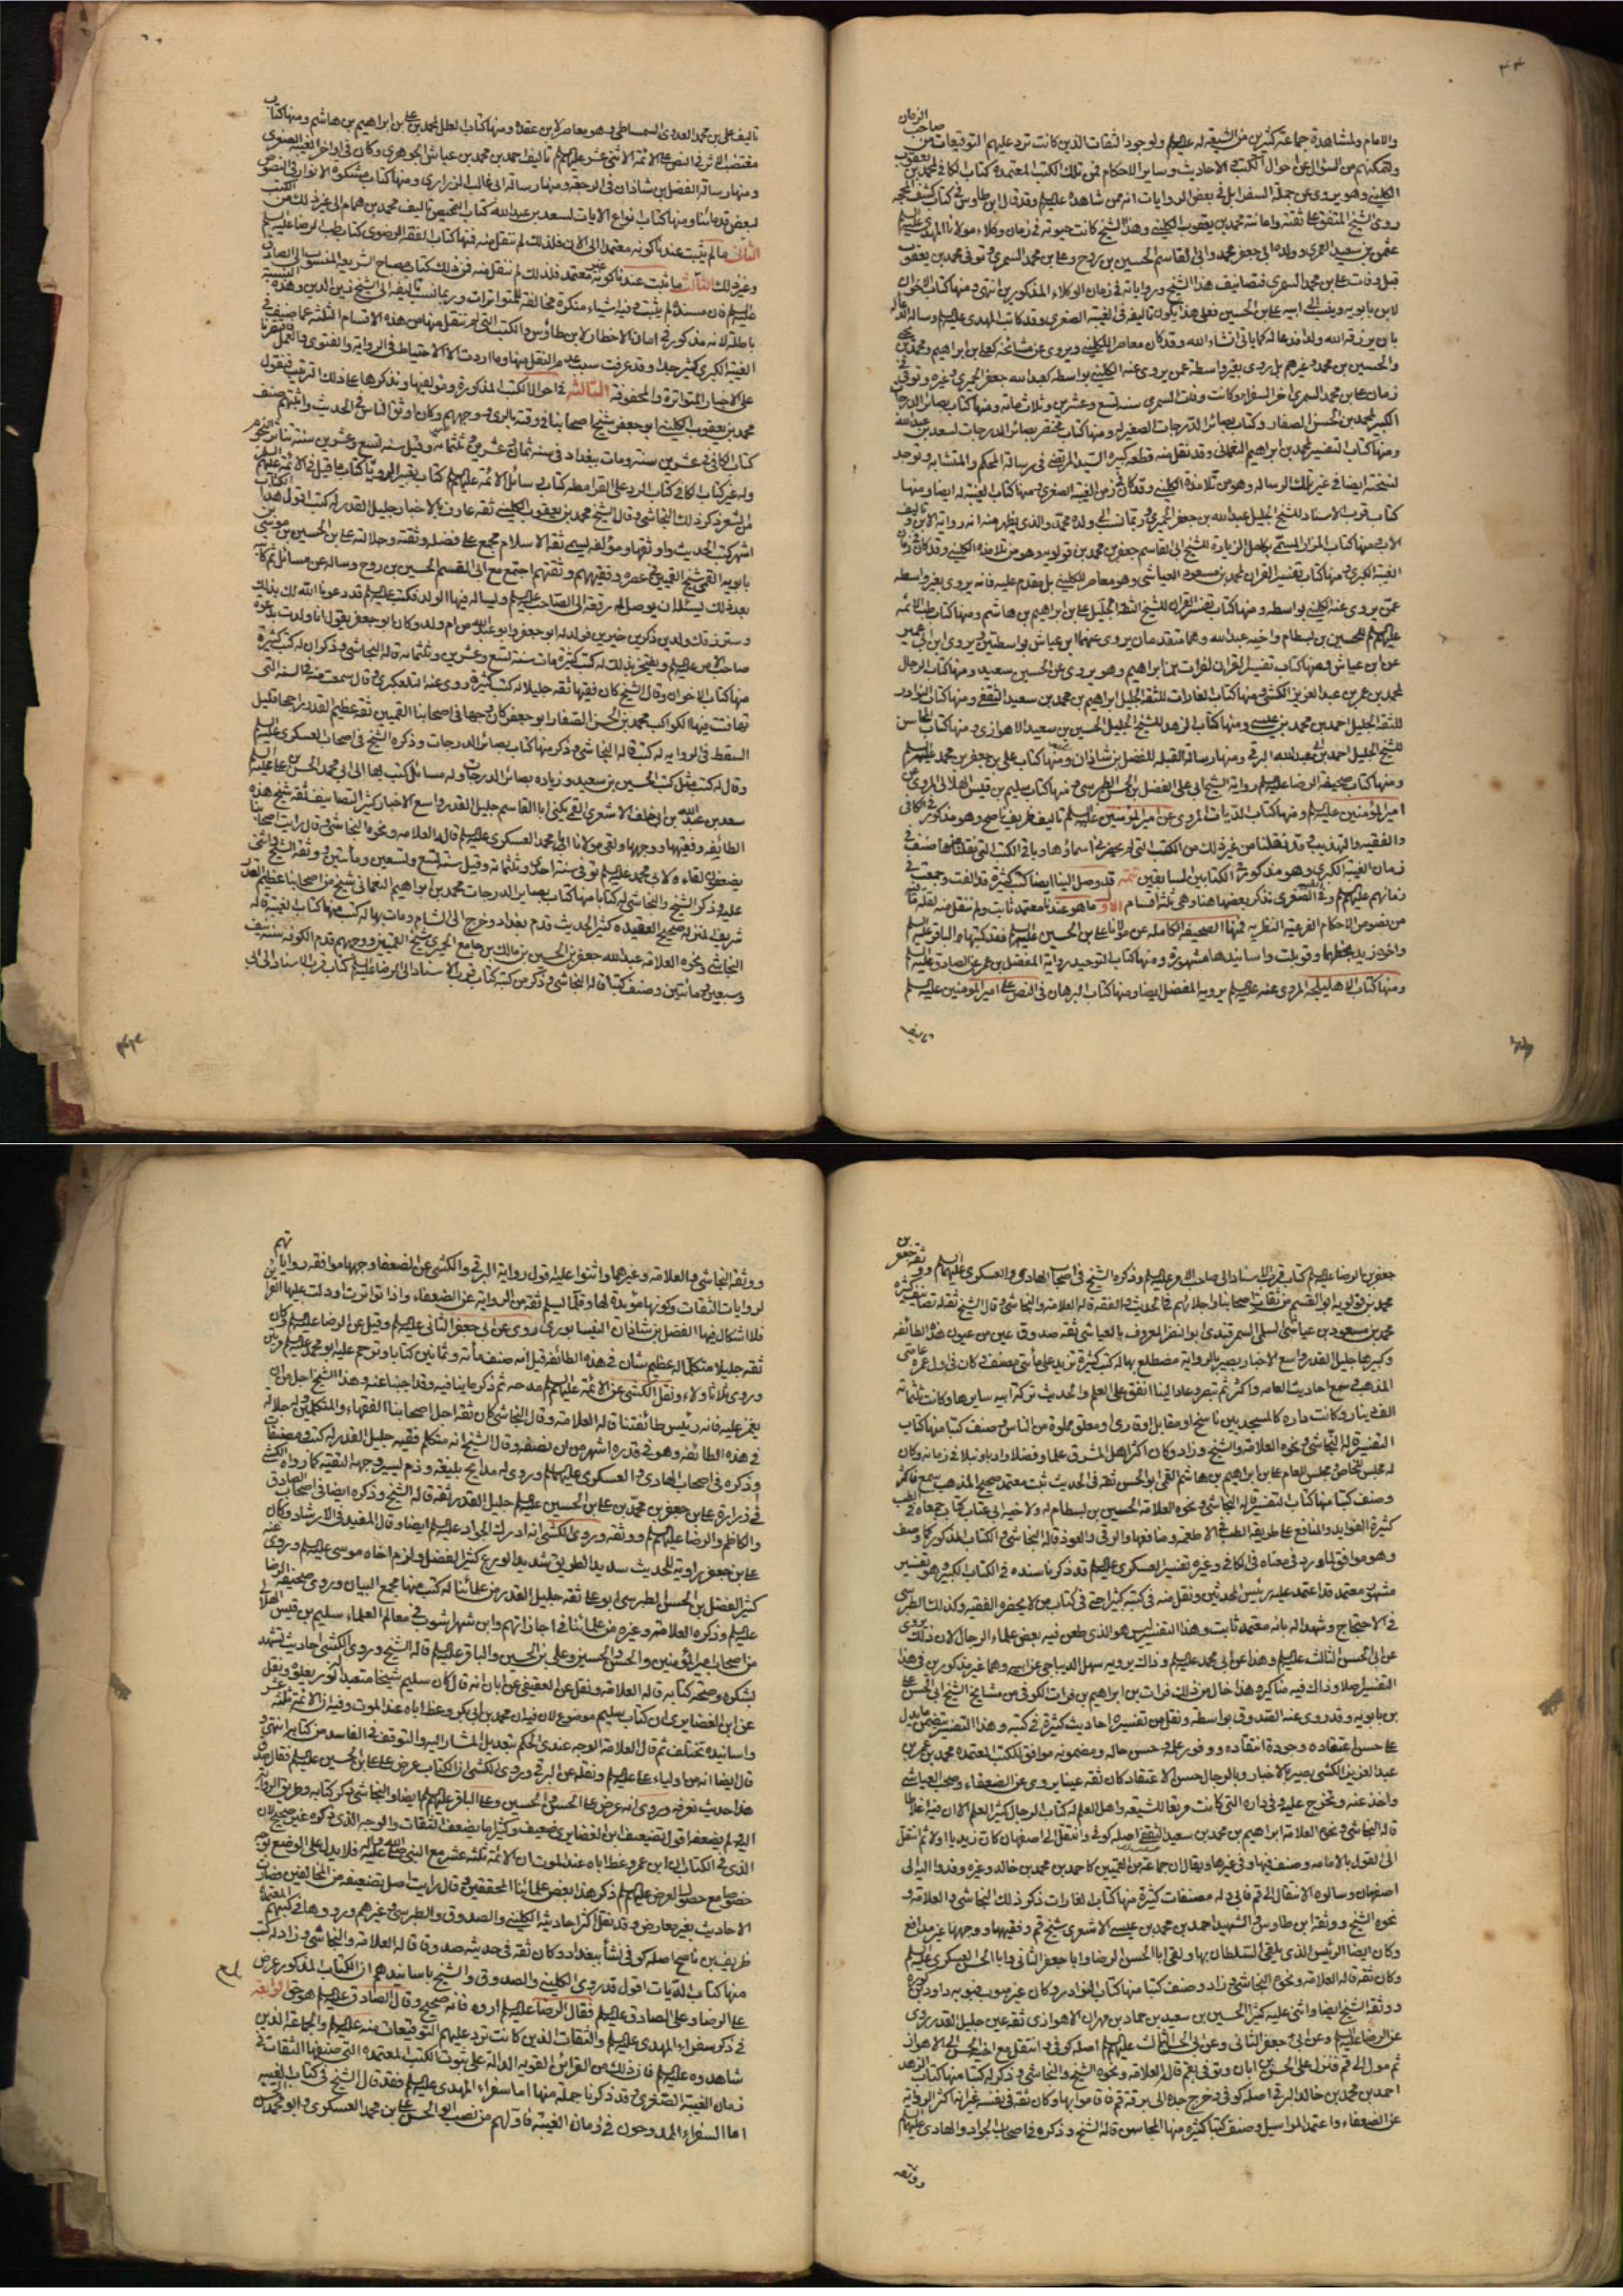 والامام ولمشاهدة جماعة كثيرين من الشيعة له عليه السلم ولوجود الثقات الذين كانت ترد عليهم التوقيعات من صاحب الزمان
ولتمكنهم من السؤال عن احوال الكتب والاحاديث وساير الاحكام فمن تلك الكتب المعتمدة كتاب الكافي لمحمد بن يعقوب
الكليني وهو يروي عن جملة السفرا بل في بعض الروايات انه ممن شاهده عليه السلم وقد قال ابن طاوس في كتاب كشف المحجه
روى الشيخ المتفق على ثقته وامانته محمد بن يعقوب الكليني وهذا الشيخ كانت حيوته في زمان وكلاء مولانا المهدي عليه السلم
عثمن بن سعيد العمري وولده ابي جعفر محمد وابي القاسم الحسين بن روح وعلي بن محمد السمري وتوفي محمد بن يعقوب
قبل وفات علي بن محمد السمري فتصانيف هذا الشيخ ورواياته في زمان الوكلاء المذكورين انتهى ومنها كتاب الاخوان
لابن بابويه وينسب الى ابيه علي بن الحسين فعلى هذا يكون تاليفه في الغيبة الصغرى وقد كاتب المهدي عليه السلم وساله الدعاء
بان يرزقه الله ولدا فدعا له كما ياتي انشاء الله وقد كان معاصر الكليني ويروي عن مشائخه كعلي بن ابراهيم ومحمد بن يحيى
والحسين بن محمد وغيرهم بل يروى بغير واسطة عمن يروى عنه الكليني بواسطه كعبد الله جعفر الحميري وغيره وتوفي في
زمان علي بن محمد السمري اخر السفراء وكانت وفات السمري سنه تسع وعشرين وثلاث مائه ومنها كتاب بصائر الدرجات
الكبير لمحمد بن الحسن الصفار وكتاب بصائر الدرجات الصغير له ومنها كتاب مختصر بصائر الدرجات لسعد بن عبد الله
ومنها كتاب التفسير لمحمد بن ابراهيم النعماني وقد نقل منه قطعه كبيره السيد المرتضى في رسالة المحكم والمتشابه وتوجد
لنسخته ايضا في غير تلك الرساله وهو من تلامذة الكليني وقد كان في زمن الغيبة الصغرى ومنها كتاب الغيبة له ايضا ومنها
كتاب قرب الاسناد للشيخ الجليل عبد الله بن جعفر الحميري وربما نسب الى ولده محمد والذي يظهر منه انه رواية الابن وتاليف
الاب ومنها كتاب المزار المسمى بكامل الزيارة للشيخ ابي القاسم جعفر بن محمد بن قولويه وهو من تلامذه الكليني وقد كان في زمان
الغيبة الكبرى ومنها كتاب تفسير القران لمحمد بن مسعود العياشي وهو معاصر للكليني بل مقدم عليه فانه يروى بغير واسطه
عمن يروى عنه الكليني بواسطه ومنها كتاب تفسير القران للشيخ الثقه الجليل علي بن ابراهيم بن هاشم ومنها كتاب طب الائمه
عليهم السلم للحسين بن بسطام واخيه عبد الله وهما متقدمان يروى عنهما ابن عياش بواسطتين ويروى ابن ابي عمير
عن ابن عياش ومنها كتاب تفسير القران لفرات بن ابراهيم وهو يروى عن الحسين سعيد ومنها كتاب الرجال
لمحمد بن عمر بن عبد العزيز الكشي ومنها كتاب الغارات للثقه الجليل ابراهيم بن محمد بن سعيد الثقفي ومنها كتاب النوادر
للثقه الجليل احمد بن محمد بن عيسى ومنها كتاب الزهد للشيخ الجليل الحسين بن سعيد الاهوازي ومنها كتاب المحاسن
للشيخ الجليل احمد بن ابي عبد الله البرقي ومنها رسالة القبله للفضل بن شاذان ومنها كتاب علي بن جعفر بن محمد عليهم السلم
ومنها كتاب صحيفة الرضا عليه السلم رواية الشيخ ابي علي الفضل بن الحسن الطبرسي ومنها كتاب سليم بن قيس الهلالي المروي عن
امير المؤمنين عليه السلم ومنها كتاب الديات المروى عن امير المؤمنين عليه السلم تاليف ظريف بن ناصح وهو مذكور في الكافي
والفقيه والتهذيب وقد نقلنا من غير ذلك من الكتب التي لم يحضرني اسماؤها وباقي الكتب التي نقلنا منها صنف في
زمان الغيبة الكبرى وهو مذكور في الكتابين السابقين تتمه قد وصل الينا ايضا كتب كثيرة قد الفت وجمعت في
زمانهم عليهم السلم وفي الصغرى نذكر بعضها هنا وهي ثلثة اقسام الاول ما هو عندنا معتمد ثابت ولم ننقل منه لقلة ما فيه
من نصوص الاحكام الفرعية النظريه فمنها الصحيفه الكامله عن مولانا علي بن الحسين عليهم السلم فقد كتبها الباقر عليه السلم
واخوه زيد بخطهما وقوبلت واسانيدها مشهورة ومنها كتاب التوحيد رواية المفضل بن عمر عن الصادق عليه السلم
ومنها كتاب الاهليلجه المروى عنه عليه السلم برواية المفضل ايضا ومنها كتاب البرهان في النص على امير المومنين عليه السلم
تاليف
تاليف علي بن محمد العدوي الشمشاطي وهو معاصر لابن عقده ومنها كتاب العلل لمحمد بن علي بن ابراهيم بن هاشم ومنها كتاب
مقتضب الاثر في النص على الائمة الاثني عشر عليهم السلم تاليف احمد بن محمد بن عياش الجوهري وكان في اواخر الغيبة الصغرى
ومنها رسالة الفضل بن شاذان في الرجعة ومنها رسالة ابي غالب الزراري ومنها كتاب مشكوة الانوار في النصوص
لبعض قدمائنا ومنها كتاب انواع الايات لسعد بن عبد الله كتاب التمحيص تاليف محمد بن همام الى غير ذلك من الكتب
الثاني ما لم يثبت عندنا كونه معتمدا الى الان فلذلك لم ننقل منه فمنها كتاب الفقه الرضوي كتاب طب الرضا عليه السلم
وغير ذلك الثالث ما ثبت عندنا كونه غير معتمد فلذلك لم ننقل منه فمن ذلك كتاب مصباح الشريعه المنسوب الى الصادق
عليه السلم فان سنده لم يثبت وفيه اشياء منكرة مخالفة للمتواترات وربما نسب تاليفه الى الشيخ زين الدين وهذه النسبة
باطلة لانه مذكور في امان الاخطار لابن طاوس والكتب التي لم ننقل منها من هذه الاقسام الثلثه مما صنف في
الغيبة الكبرى كثير جدا وقد عرفت سبب عدم النقل منها وما اردت الا الاحتياط في الرواية والفتوى والعمل
على الاخبار المتواترة والمحفوفة الثالثه في احوال الكتب المذكورة ومؤلفيها ونذكرها على ذلك الترتيب فنقول
محمد بن يعقوب الكليني ابو جعفر شيخ اصحابنا في وقته بالري ووجههم وكان اوثق الناس في الحديث واثبتهم صنف
كتاب الكافي في عشرين سنة ومات ببغداد في سنه ثمان وعشرين وثلثمائه وقيل سنه تسع وعشرين سنة تناثر النجوم
وله غير كتاب الكافي كتاب الرد على القرامطه كتاب رسائل الائمه عليهم السلم كتاب تعبير الرؤيا كتاب ما قيل في الائمة عليهم السلم
من الشعر ذكر ذلك النجاشي وقال الشيخ محمد بن يعقوب الكليني ثقه عارف بالاخبار جليل القدر له كتب اقول هذا الكتاب
اشهر كتب الحديث واوثقها ومؤلفه يسمى ثقه الاسلام مجمع على فضله وثقته وجلالته علي بن الحسين بن موسى بن
بابويه القمي شيخ القميين في عصره وفقيههم وثقتهم اجتمع مع ابي القسم الحسين بن روح وساله عن مسائل ثم كاتبه
بعد ذلك يسئله ان يوصل له رقعة الى الصاحب عليه السلم ويساله فيها الولد فكتب عليه السلم قد دعونا الله لك بذلك
وسترزق ولدين ذكرين خيرين فولد له ابو جعفر وابو عبد الله من ام ولد وكان ابو جعفر يقول انا ولدت بدعوة
صاحب الامر عليه السلم ويفتخر بذلك له كتب كثيره مات سنه تسع وعشرين وثلثمائه قاله النجاشي وذكر ان له كتب كثيرة
منها كتاب الاخوان وقال الشيخ كان فقيها ثقه جليلا له كتب كثيره روى عنه التلعكبري قال سمعت منه في السنه التي
تهافتت فيها الكواكب محمد بن الحسن الصفار ابو جعفر كان وجها في اصحابنا القميين ثقه عظيم القدر راجحا قليل
السقط في الروايه له كتب قاله النجاشي وذكر منها كتاب بصائر الدرجات وذكره الشيخ في اصحاب العسكري عليه السلم
وقال له كتب مثل كتب الحسين بن سعيد وزيادة بصائر الدرجات وله مسائل كتب بها الى ابي محمد الحسن بن علي عليه السلم
سعد بن عبد الله بن ابي خلف الاشعري القمي يكنى ابا القاسم جليل القدر واسع الاخبار كثير التصانيف ثقه شيخ هذه
الطائفه وفقيهها ووجهها ولقي مولانا ابا محمد العسكري عليه السلم قاله العلامه ونحوه النجاشي وقال رايت اصحابنا
يضعفون لقاءه لابي محمد عليه السلم توفي سنة احدى وثلثمائه وقيل سنه تسع وتسعين ومأتين ووثقه الشيخ واثنى
عليه وذكر الشيخ والنجاشي له كتابا منها كتاب بصائر الدرجات محمد بن ابراهيم النعماني شيخ من اصحابنا عظيم القدر
شريف المنزله صحيح العقيده كثير الحديث قدم بغداد وخرج الى الشام ومات بها له كتب منها كتاب الغيبة قاله
النجاشي ونحوه العلامة عبد الله جعفر بن الحسين بن مالك بن جامع الحميري شيخ القميين ووجههم قدم الكوفه سنه نيف
وسبعين ومائتين وصنف كتبا قاله النجاشي وذكر من كتبه كتاب قرب الاسناد الى الرضا عليه السلم كتاب قرب الاسناد الى ابي
جعفر بن الرضا عليه السلم كتاب قرب الاسناد الى صاحب الامر عليه السلم وذكره الشيخ في اصحاب الهادي والعسكري عليهما السلم ووثقه جعفر بن
محمد بن قولويه ابو القسم من ثقات اصحابنا واجلائهم في الحديث والفقه قاله العلامة والنجاشي وقال الشيخ ثقه له تصانيف كثيره
محمد بن مسعود بن عياش السلمي السمرقندي ابو النضر المعروف بالعياشي ثقه صدوق عين من عيون هذه الطائفه
وكبيرها جليل القدر واسع الاخبار بصير بالرواية مضطلع بها له كتب كثيرة تزيد على مأتي مصنف كان في اول عمره عامي
المذهب سمع احاديث العامه واكثر ثم تبصر وعاد الينا انفق على العلم والحديث تركة ابيه سايرها وكانت ثلثمائه
الف دينار وكانت داره كالمسجد بين ناسخ او مقابل او قارئ او معلق مملوة من الناس وصنف كتبا منها كتاب
التفسير قاله النجاشي ونحوه العلامه والشيخ وزاد وكان اكثر اهل المشرق علما وفضلا وادبا ونبلا في زمانه وكان
له مجلس للخاص ومجلس للعام علي بن ابراهيم بن هاشم القمي ابو الحسن ثقه في الحديث ثبت معتمد صحيح المذهب سمع فاكثر
وصنف كتبا منها كتاب التفسير قاله النجاشي ونحوه العلامة الحسين بن بسطام له ولاخيه ابي عتاب كتاب جمعاه في الطب
كثيرة الفوايد والمنافع على طريقة الطب في الاطعمة ومنافعها والرقى والعوذ قاله النجاشي والكتاب المذكور كما وصف
وهو موافق لما ورد في معناه في الكافي وغيره تفسير العسكري عليه السلم قد ذكرنا سنده في الكتاب الكبير وهو تفسير
مشهور معتمد قد اعتمد عليه رئيس المحدثين ونقل منه في كتبه كثيرا حتى في كتاب من لا يحضره الفقيه وكذلك الطبرسي
في الاحتجاج وشهدا له بانه معتمد ثابت وهذا التفسير ليس هو الذي طعن فيه بعض علماء الرجال لان ذلك يروى
عن ابي الحسن الثالث عليه السلم وهذا عن ابي محمد عليه السلم وذاك يرويه سهل الديباجي عن ابيه وهما غير مذكورين في هذا
التفسير اصلا وذاك فيه مناكير وهذا خال من ذلك فرات بن ابراهيم بن فرات الكوفي من مشايخ الشيخ ابي الحسن علي
بن بابويه وقد روى عنه الصدوق بواسطه ونقل من تفسيره احاديث كثيرة في كتبه وهذا التفسير يتضمن ما يدل
على حسن اعتقاده وجودة انتقاده ووفور علمه وحسن حاله ومضمونه موافق للكتب المعتمده محمد بن عمر بن
عبد العزيز الكشي بصير بالاخبار وبالرجال حسن الاعتقاد كان ثقه عينا يروى عن الضعفاء وصحب العياشي
واخذ عنه وتخرج عليه وفي داره التي كانت مرتعا للشيعه واهل العلم له كتاب الرجال كثير العلم الا ان فيه اغلاطا
قاله النجاشي ونحوه العلامة ابراهيم بن محمد بن سعيد الثقفي اصله كوفي وانتقل الى اصفهان كان زيديا اولا ثم انتقل
الى القول بالامامه وصنف فيها وفي غيرها ويقال ان جماعة من القميين كاحمد بن محمد بن خالد وغيره وفدوا اليه الى
اصفهان وسالوه الانتقال الى قم فابى وله مصنفات كثيرة منها كتاب الغارات ذكر ذلك النجاشي والعلامة و
نحوه الشيخ ووثقه ابن طاوس والشهيد احمد بن محمد بن عيسى الاشعري شيخ قم وفقيهها ووجهها غير مدافع
وكان ايضا الرئيس الذي يلقى السلطان بها ولقي ابا الحسن الرضا وابا جعفر الثاني وابا الحسن العسكري عليهم السلم
وكان ثقه قاله العلامة ونحوه النجاشي وزاد وصنف كتبا منها كتاب النوادر وكان غير مبوب فبوبه داود بن كوره
ووثقه الشيخ ايضا واثنى عليه كثيرا الحسين بن سعيد بن حماد بن مهران الاهوازي ثقه عين جليل القدر روى
عن الرضا عليه السلم وعن ابي جعفر الثاني وعن ابي الحسن الثالث عليهم السلم اصله كوفي وانتقل مع اخيه الحسن الى الاهواز
ثم تحول الى قم فنزل على الحسن بن ابان وتوفي بقم قاله العلامة ونحوه الشيخ والنجاشي وذكر له كتبا منها كتاب الزهد
احمد بن محمد بن خالد البرقي اصله كوفي وخرج جده الى برقة قم فاقاموا بها وكان ثقه في نفسه غير انه اكثر الرواية
عن الضعفاء واعتمد المراسيل وصنف كتبا كثيره منها المحاسن قاله الشيخ وذكره في اصحاب الجواد والهادي عليهما السلم
ووثقه
ووثقه النجاشي والعلامة وغيرهما واثنوا عليه اقول رواية البرقي والكشي عن الضعفا وجهها موافقة روايتهم
لروايات الثقات وكونها مؤيدة لها وقلما يسلم ثقه من الرواية عن الضعفاء واذا تواترت ودلت عليها القراين
فلا اشكال فيها الفضل بن شاذان النيسابوري روى عن ابي جعفر الثاني عليه السلم وقيل عن الرضا عليه السلم وكان
ثقه جليلا متكلما له عظيم شان في هذه الطائفه قيل انه صنف مأئة وثمانين كتابا وترحم عليه ابو محمد عليه السلم مرتين
وروى ثلاثا ولاء ونقل الكشي عن الائمة عليهم السلم مدحه ثم ذكر ما ينافيه وقد اجبنا عنه وهذا الشيخ اجل من ان
يغمز عليه فانه رئيس طائفتنا قاله العلامة وقال النجاشي كان ثقه اجل اصحابنا الفقهاء والمتكلمين وله جلالة
في هذه الطائفه وهو في قدره اشهر من ان نصفه وقال الشيخ انه متكلم فقيه جليل القدر له كتب ومصنفات
وذكره في اصحاب الهادي والعسكري عليهما السلم وروى له مدايح بليغة وذم يسير وجهه التقيه كما رواه الكشي
في زرارة علي بن جعفر بن محمد بن علي بن الحسين عليهم السلم جليل القدر ثقه قاله الشيخ وذكره ايضا في اصحاب الصادق
والكاظم والرضا عليهم السلم ووثقه وروى الكشي انه ادرك الجواد عليه السلم ايضا وقال المفيد في الارشاد وكان
علي بن جعفر راوية للحديث سديد الطريق شديد الورع كثير الفضل ولزم اخاه موسى عليه السلم وروى عنه
كثيرا الفضل بن الحسن الطبرسي ابو علي ثقه جليل القدر من علمائنا له كتب منها مجمع البيان وروى صحيفة الرضا
عليه السلم وذكره العلامة وغيره من علمائنا في اجازاتهم وابن شهراشوب في معالم العلماء سليم بن قيس الهلالي
من اصحاب امير المؤمنين والحسن والحسين وعلي بن الحسين والباقر عليهم السلم قاله الشيخ وروى الكشي احاديث تشهد
بشكره وصحة كتابه قاله العلامة ونقل عن العقيقي عن ابان انه قال كان سليم شيخا متعبدا له نور يعلوه ونقل
عن ابن الغضائري ان كتاب سليم موضوع لان فيه ان محمد بن ابي بكر وعظ اباه عند الموت وفيه ان الائمة ثلثة عشر
واسانيده تختلف ثم قال العلامة الوجه عندي الحكم بتعديل المشار اليه والتوقف في الفاسد من كتابه انتهى و
قال ايضا انه من اولياء علي عليه السلم ونقله عن البرقي وروى الكشي ان الكتاب عرض على علي بن الحسين عليه السلم فقال صدق
هذا حديث نعرفه وروى انه عرض على الحسن والحسين وعلى الباقر عليهم السلم ايضا والنجاشي ذكر كتابه وطريق الرواية
اليه ولم يضعفه اقول تضعيف ابن الغضايري ضعيف وكثيرا ما يضعف الثقات والوجه الذي ذكره غير صحيح لان
الذي في الكتاب ان ابن عمر وعظ اباه عند الموت وان الائمة ثلثه عشر مع النبي صلى الله عليه واله فلا يدل على الوضع بوجه
خصوصا مع حصول العرض عليهم السلم ذكر هذا بعض علمائنا المحققين وقال رايت اصل تضعيفه من المخالفين وصارت
الاحاديث بغير معارض وقد نقل اكثر احاديثه الكليني والصدوق والطبرسي وغيرهم وردوها في كتبهم المعتمدة
ظريف بن ناصح اصله كوفي نشأ ببغداد وكان ثقه في حديثه صدوقا قاله العلامة والنجاشي وزاد له كتب
منها كتاب الديات اقول قد روى الكليني والصدوق والشيخ باسانيدهم ان الكتاب المذكور عرض
على الرضا وعلى الصادق عليه السلم فقال الرضا عليه السلم اروه فانه صحيح وقال الصادق عليه السلم هو حق الرابعه
في ذكر سفراء المهدي عليه السلم والثقات الذين كانت ترد عليهم التوقيعات منه عليه السلم والجماعة الذين
شاهدوه عليه السلم فان ذلك من القرائن القويه الدالة على ثبوت الكتب المعتمده التي صنفها الثقات في
زمان الغيبة الصغرى وقد ذكرنا جملة منها اما سفراء المهدي عليه السلم فقد قال الشيخ في كتاب الغيبه
اما السفراء الممدوحون في زمان الغيبه فاولهم من نصبه ابو الحسن علي بن محمد العسكري وابو محمد الحسن